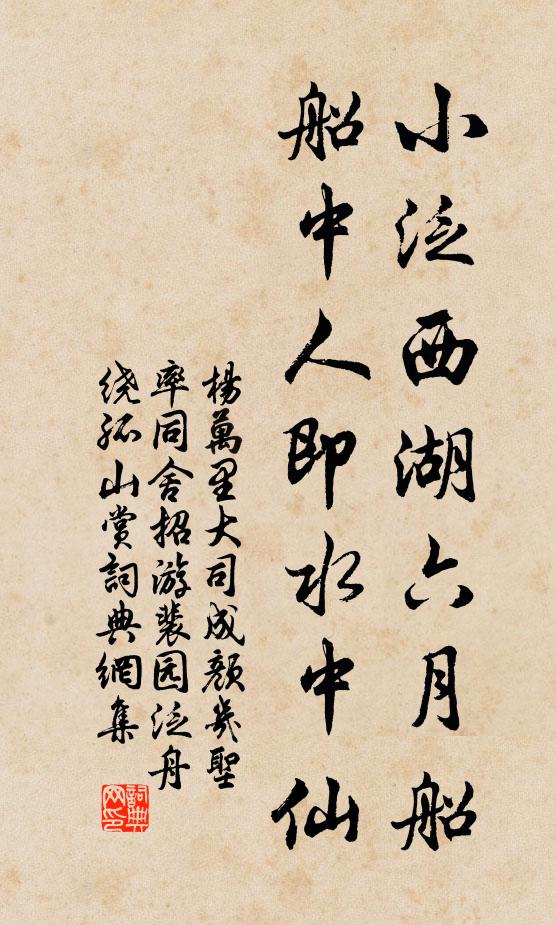 小泛西湖六月船
船中人即水中仙
楊萬里大司成顏幾聖
率同舍招游裴园泛舟
绕孤山賞詞典網集
詞典網印